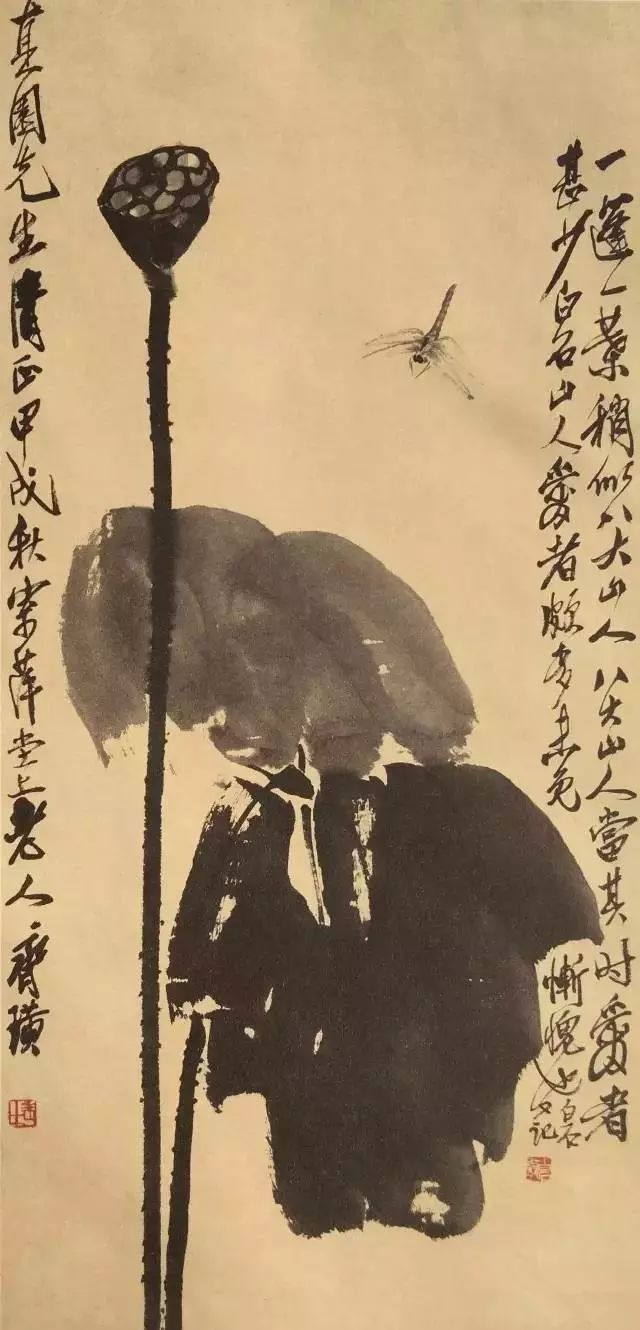 一蓬一葉稍似八大山人八大山人當其时愛者
甚少白石山人愛者頗多未免
慚愧也白石又記
園先生清正甲戌秋寄萍堂上老人齊璜